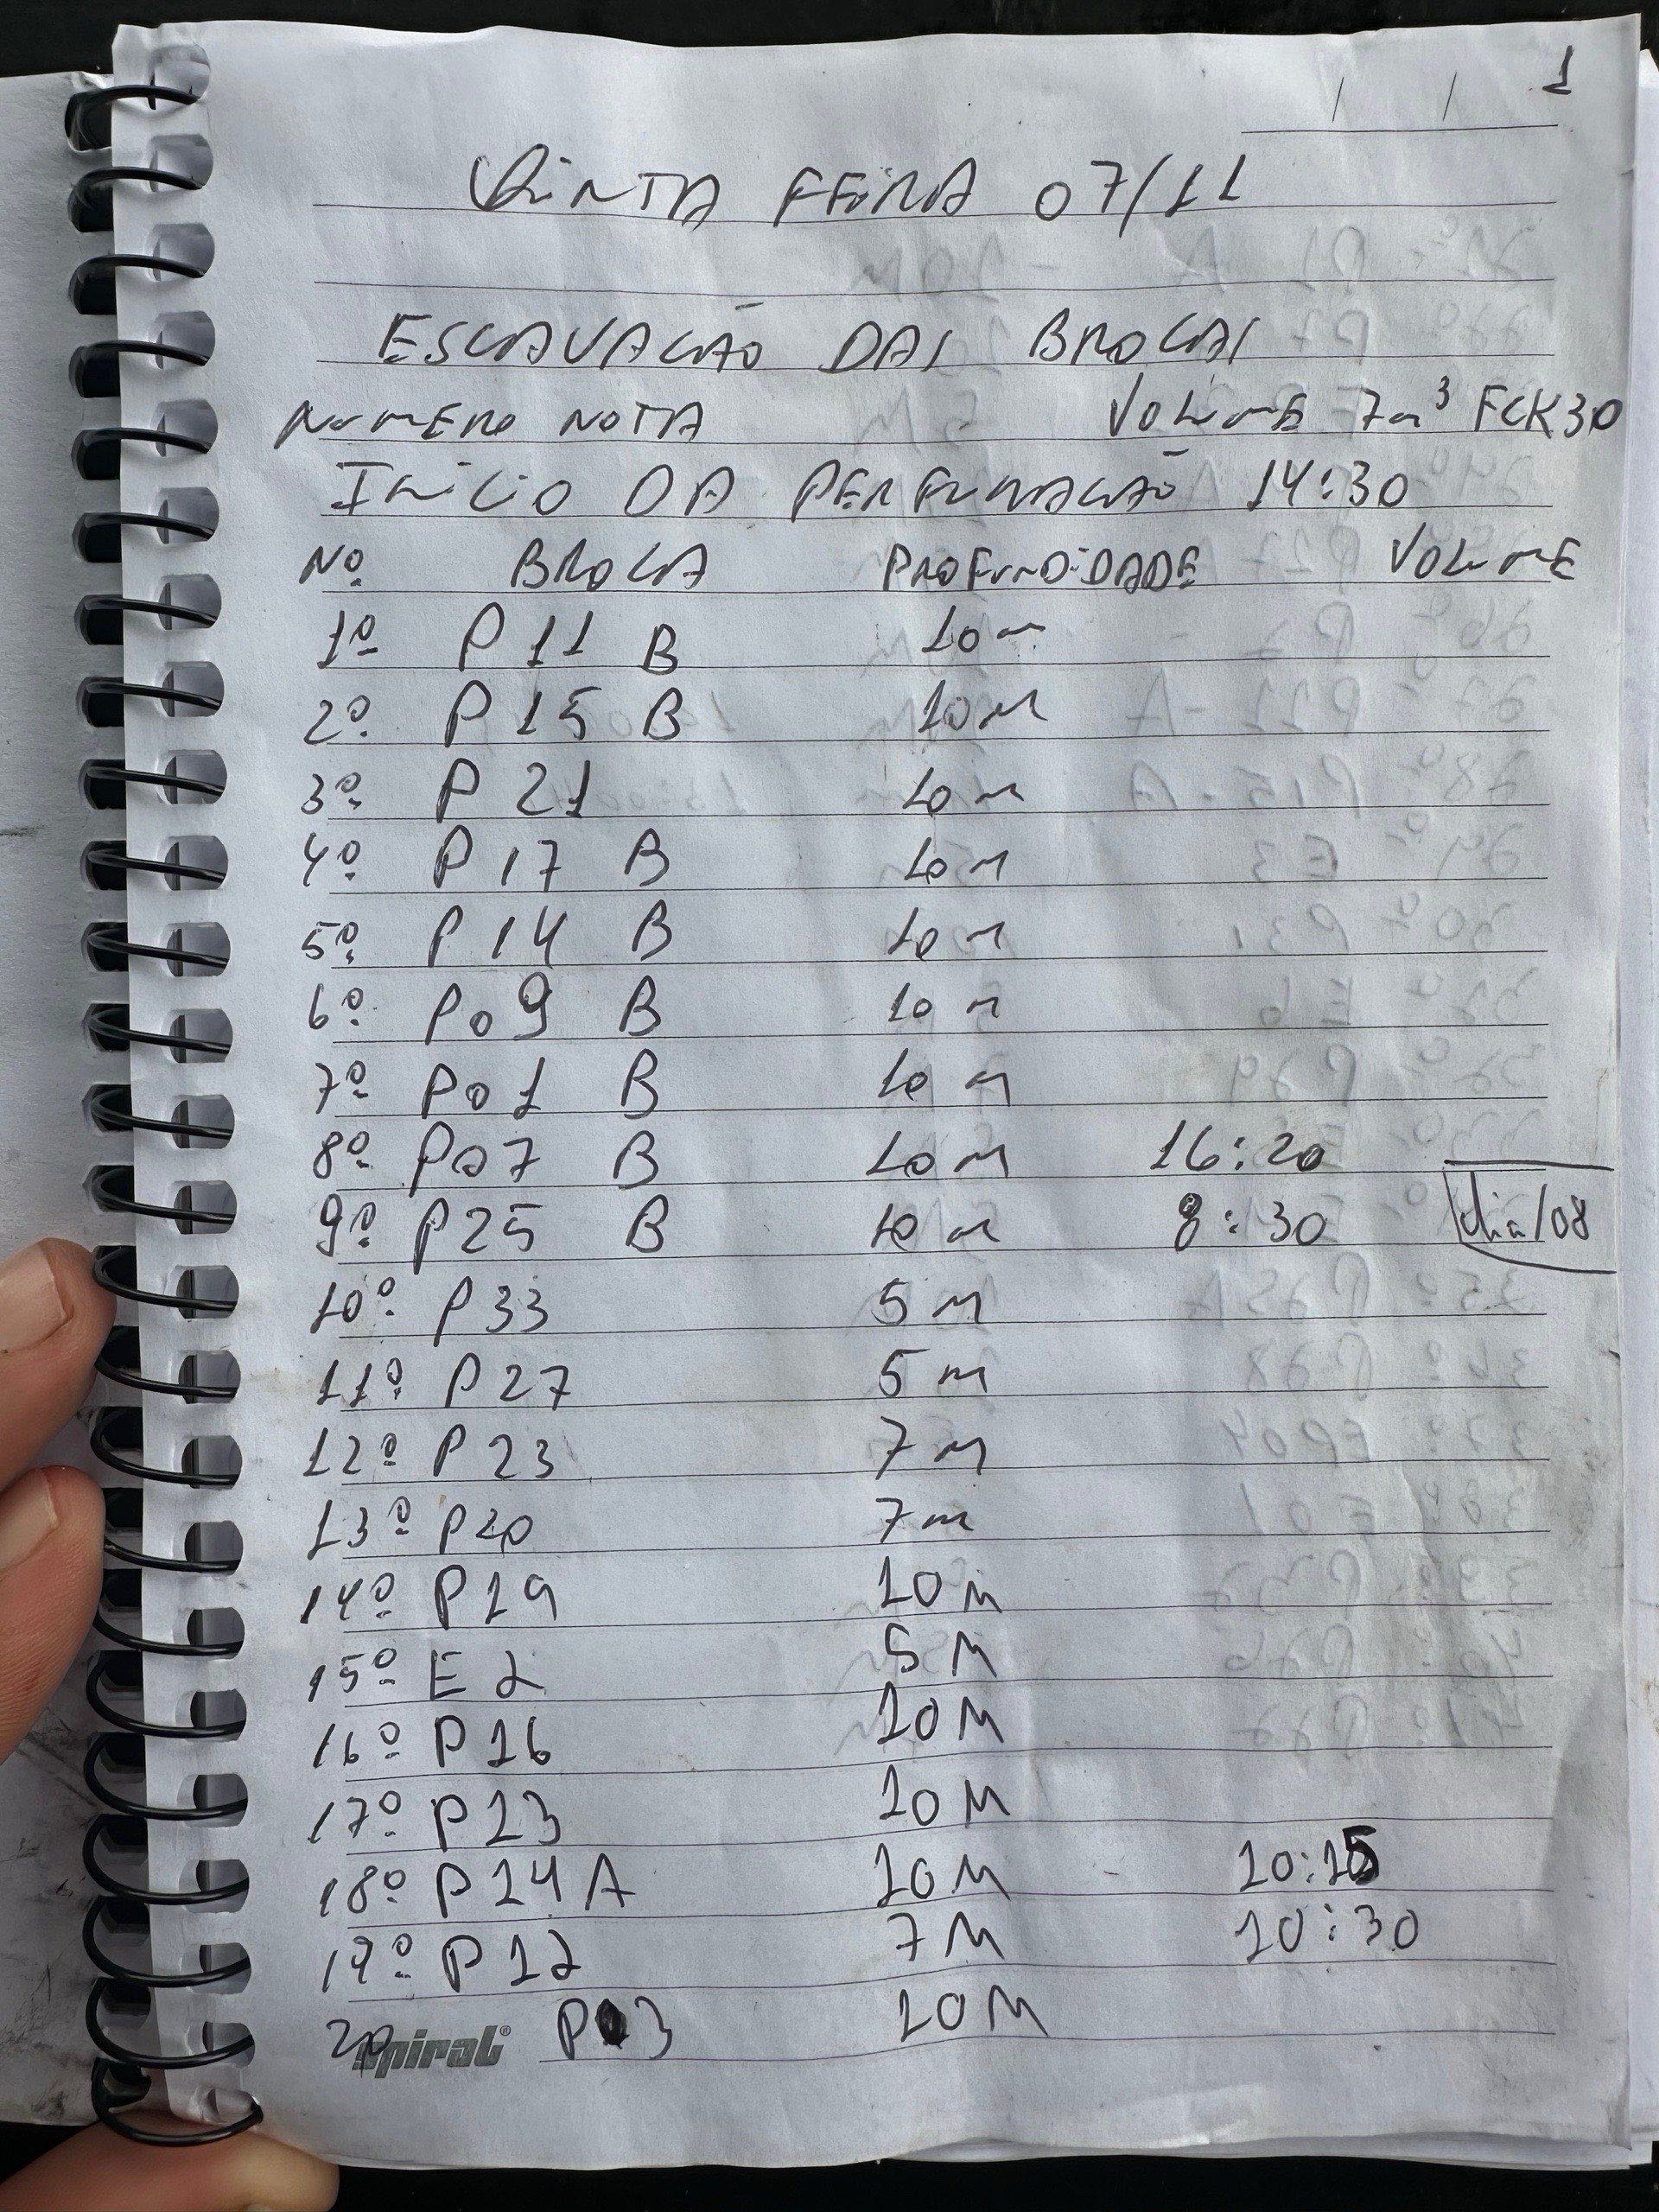 1
QUINTA FEIRA 07/11
ESCAVAÇÃO DAS BROCAS
NUMERO NOTA VOLUME 7m³ FCK30
INÍCIO DA PERFURAÇÃO 14:30
Nº BROCA PROFUNDIDADE VOLUME
1º P11 B 10m
2º P15 B 10M
3º P21 10m
4º P17 B 10m
5º P14 B 10m
6º P09 B 10m
7º P01 B 10m
8º P07 B 10M 16:20
9º P25 B 10m 8:30 dia/08
10º P33 5M
11º P27 5m
12º P23 7m
13º P20 7m
14º P19 10M
15º E2 5M
16º P16 10M
17º P13 10M
18º P14A 10M - 10:15
19º P12 7M 10:30
20 P03 10M
spiral®